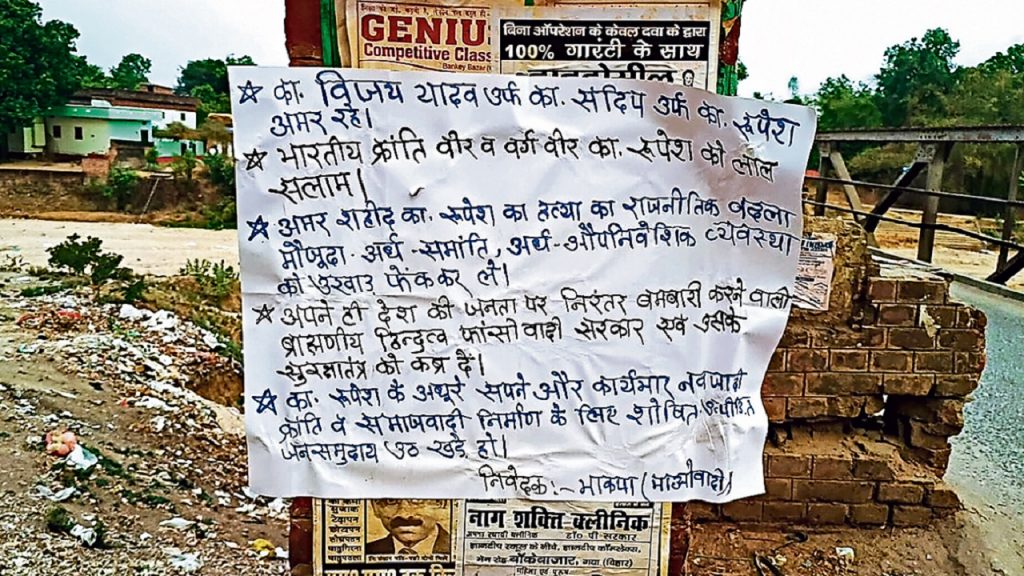 GENIUS
Competitive Class
Bankey Bazar
बिना ऑपरेशन के केवल दवा के द्वारा
100% गारंटी के साथ
☆ का. विजय यादव उर्फ का. संदिप उर्फ का. रूपेश
अमर रहे।
☆ भारतीय क्रांति वीर व वर्ग वीर का. रूपेश को लाल
सलाम।
☆ अमर शहीद का. रूपेश का हत्या का राजनीतिक बदला
मौजूदा अर्ध-सामंति, अर्ध-औपनिवेशिक व्यवस्था
को उखाड़ फेंककर लें।
☆ अपने ही देश की जनता पर निरंतर बमबारी करने वाली
ब्राह्मणीय हिन्दुत्व फांसीवादी सरकार एवं उसके
सुरक्षातंत्र को कब्र दें।
☆ का. रूपेश के अधूरे सपने और कार्यभार नवजनवादी
क्रांति व समाजवादी निर्माण के लिए शोषित उत्पीड़ित
जनसमुदाय उठ खड़े हो।
निवेदक:- भाकपा (माओवादी)
नाग शक्ति क्लीनिक
डॉ० पी० सरकार
बाँकेबाजार, गया (बिहार)